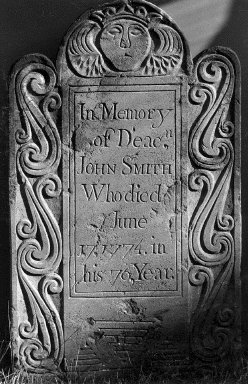 In Memory
of Deacn
JOHN SMITH
Who died
June
17, 1774, in
his 76, Year.